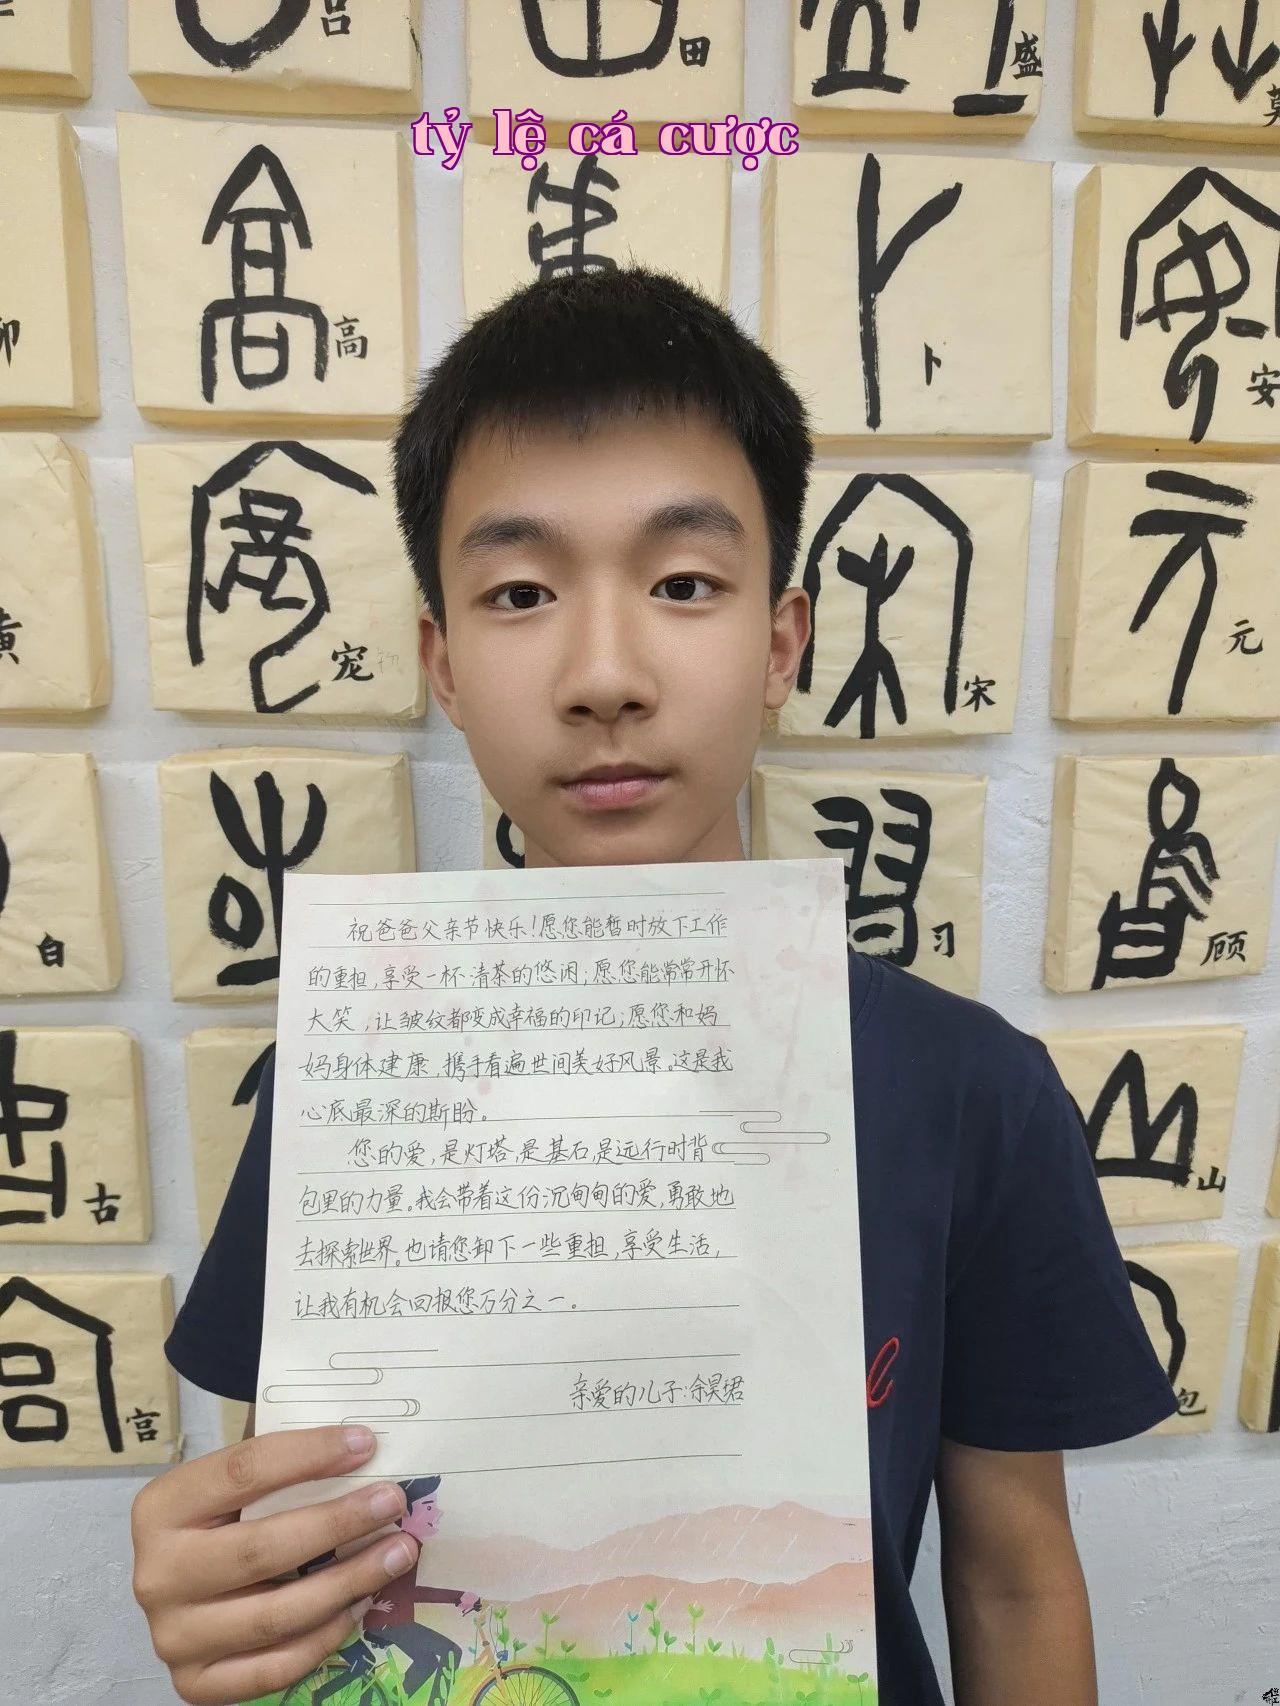 吕
田
盛
莫
tỷ lệ cá cược
高
卜
安
黄
宠
宋
元
自
习
顾
祝爸爸父亲节快乐！愿您能暂时放下工作
的重担，享受一杯清茶的悠闲；愿您能常常开怀
大笑，让皱纹都变成幸福的印记；愿您和妈
妈身体建康，携手看遍世间美好风景。这是我
心底最深的斯盼。
您的爱，是灯塔，是基石，是远行时背
包里的力量。我会带着这份沉甸甸的爱，勇敢地
去探索世界。也请您卸下一些重担，享受生活，
让我有机会回报您万分之一。
亲爱的儿子：余昊珺
古
山
宫
包